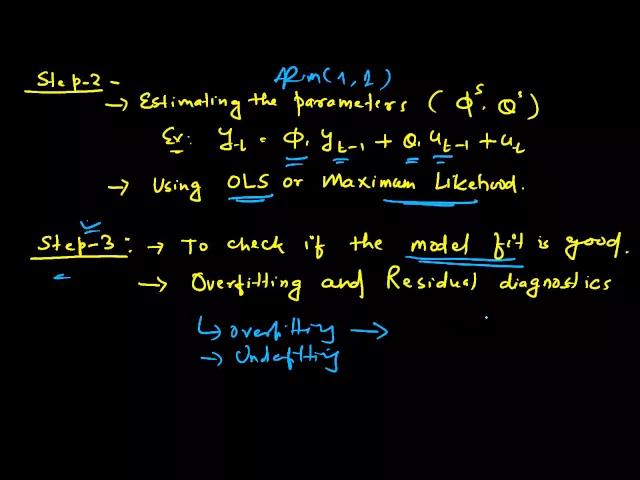 Step-2 - ARM(1,1)
→ Estimating the parameters (ϕ's. θ's)
Ex: yt = ϕ1 yt-1 + θ1 ut-1 + ut
→ Using OLS or Maximum Likehood.
Step-3: → To check if the model fit is good.
→ Overfitting and Residual diagnostics
↳ Overfitting →
→ Undefitting